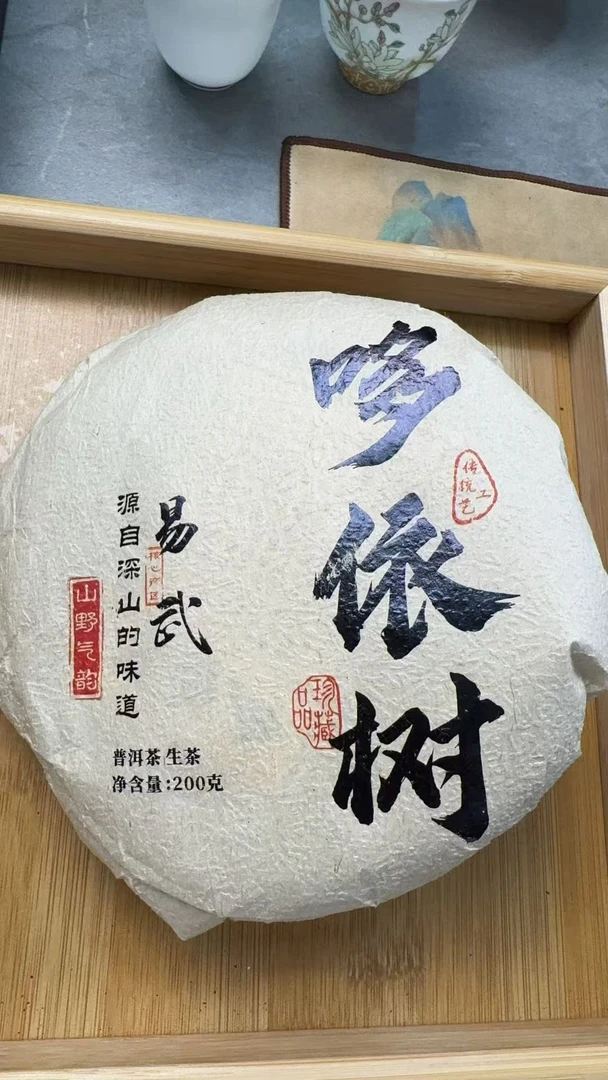 哆依树
传统工艺
珍藏品
易武
核心产区
源自深山的味道
山野气韵
普洱茶 生茶
净含量:200克